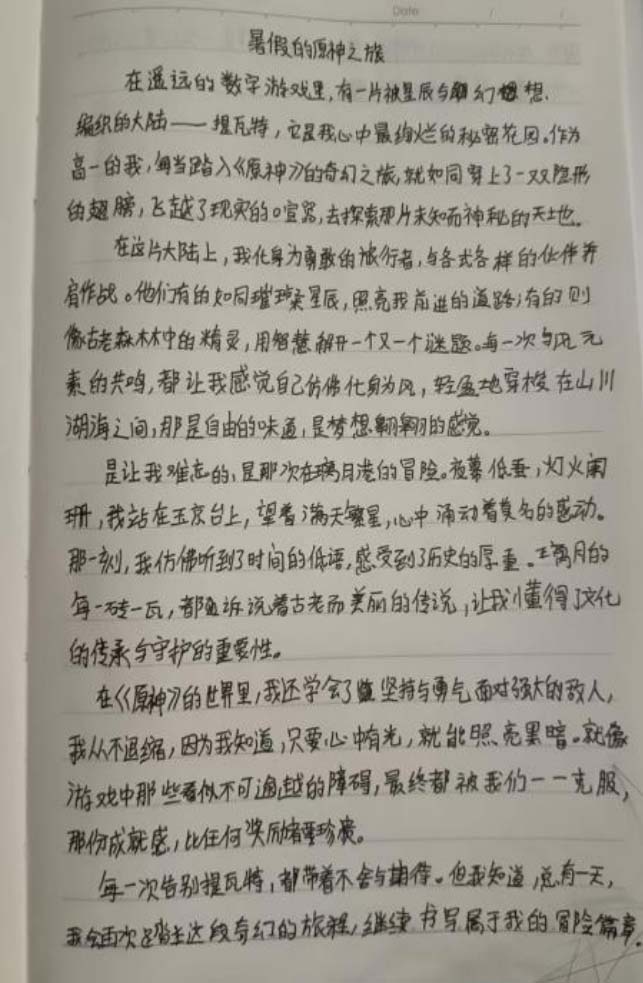 Date
暑假的原神之旅
在遥远的数字游戏里,有一片被星辰与幻想
编织的大陆——提瓦特,它是我心中最绚烂的秘密花园。作为
高一的我,每当踏入《原神》的奇幻之旅,就如同穿上了一双隐形
的翅膀,飞越了现实的喧嚣,去探索那片未知而神秘的天地。
在这片大陆上,我化身为勇敢的旅行者,与各式各样的伙伴并
肩作战。他们有的如同璀璨星辰,照亮我前进的道路;有的则
像古老森林中的精灵,用智慧解开一个又一个谜题。每一次与风元
素的共鸣,都让我感觉自己仿佛化身为风,轻盈地穿梭在山川
湖海之间,那是自由的味道,是梦想翱翔的感觉。
最让我难忘的,是那次在璃月港的冒险。夜幕低垂,灯火阑
珊,我站在玉京台上,望着满天繁星,心中涌动着莫名的感动。
那一刻,我仿佛听到了时间的低语,感受到了历史的厚重。璃月的
每一砖一瓦,都诉说着古老而美丽的传说,让我懂得了文化
的传承与守护的重要性。
在《原神》的世界里,我还学会了坚持与勇气面对强大的敌人,
我从不退缩,因为我知道,只要心中有光,就能照亮黑暗。就像
游戏中那些看似不可逾越的障碍,最终都被我们一一克服,
那份成就感,比任何奖励都要珍贵。
每一次告别提瓦特,都带着不舍与期待。但我知道,总有一天,
我会再次踏上这段奇幻的旅程,继续书写属于我的冒险篇章。